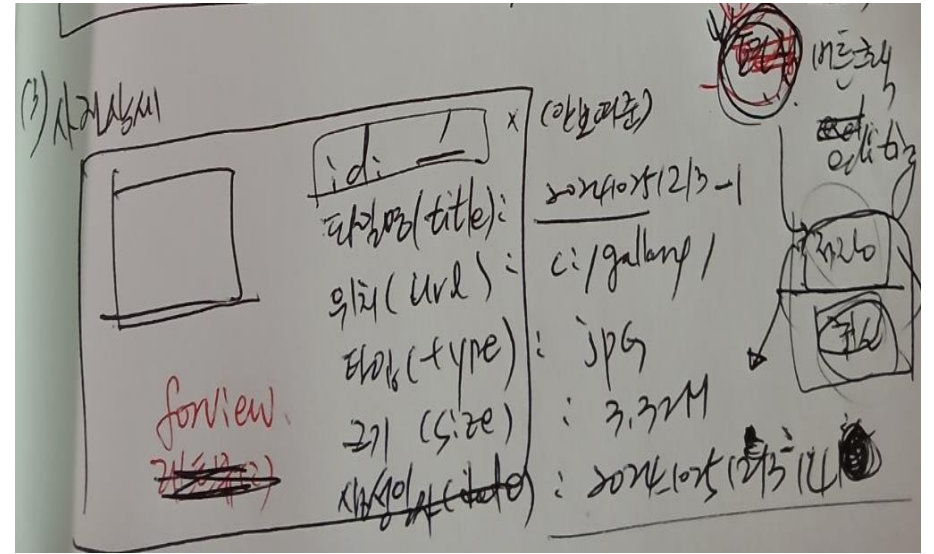 (3) 사진상세
id: x (안보여줌)
파일명(title): 202410251213-1
위치(url): c:/gallary/
타입(type): JPG
크기(size): 3.32M
생성일 (date): 20241025
forview.
버튼클릭
editing
저장
취소